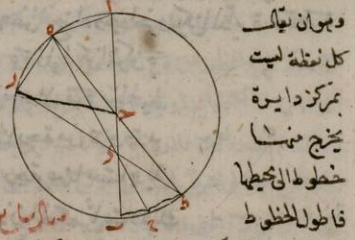 وهو ان يقال
كل نقطة ليست
بمركز دايرة
يخرج منها
خطوط الى محيطها
فاطول الخطوط
ا
ه
د
ح
ر
ط
ج
ب